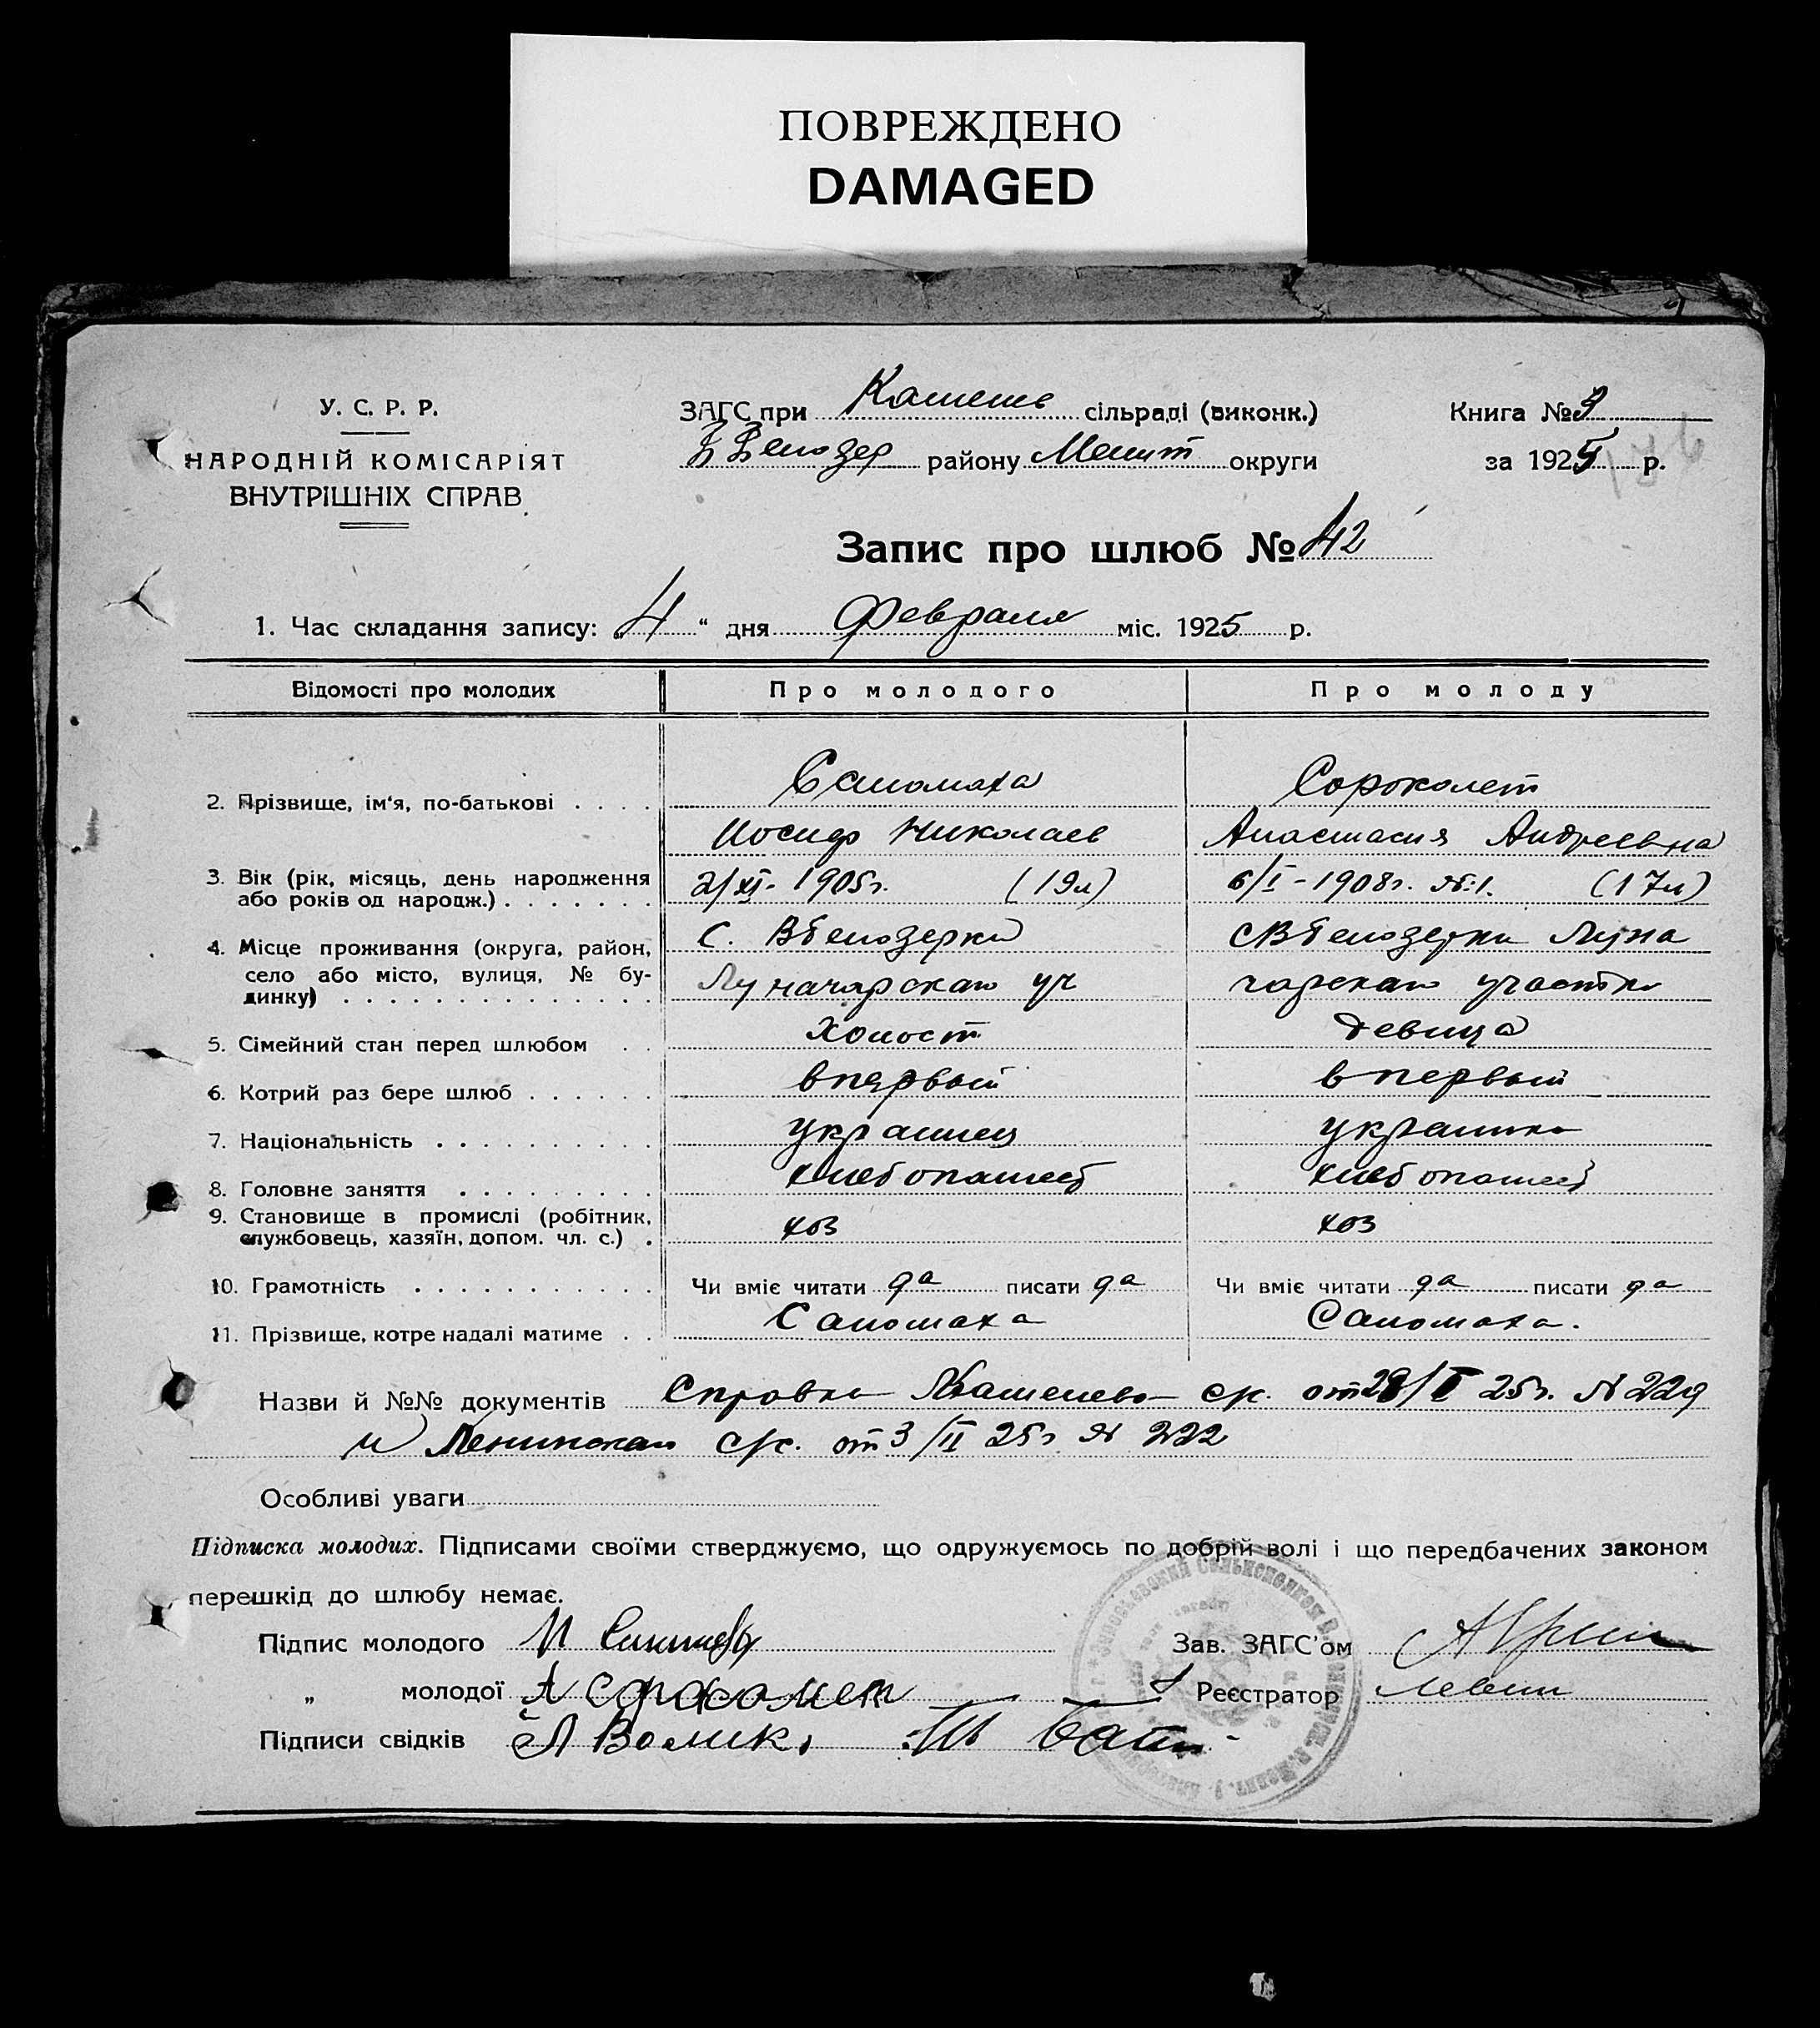 ПОВРЕЖДЕНО
DAMAGED
У. С. Р. Р.
НАРОДНІЙ КОМІСАРІЯТ
ВНУТРІШНІХ СПРАВ
ЗАГС при сільраді (виконк.)
району Мелит округи
Книга №
за 1925 р.
Запис про шлюб № 42
1. Час складання запису: „4“ дня Февраля міс. 1925 р.
Відомості про молодих Про молодого Про молоду
2. Прізвище, ім'я, по-батькові . . . . Саломаха Сороколет
Иосиф Николаев Анастасия Андреевна
3. Вік (рік, місяць, день народження 2/XI - 1905г. (19л) 6/I - 1908г. (17л)
або років од народж.) . . . . . . .
4. Місце проживання (округа, район, С. ВБелозерка СВБелозерки Луна
село або місто, вулиця, № бу- Луначарскаго уч чарскаго участка
динку) . . . . . . . . . . . . . .
5. Сімейний стан перед шлюбом . . холост девица
6. Котрий раз бере шлюб . . . . . . впервый впервый
7. Національність . . . . . . . . . . украинец украинка
8. Головне заняття . . . . . . . . . хлебопашец хлебопашец
9. Становище в промислі (робітник, хоз хоз
службовець, хазяїн, допом. чл. с.) .
10. Грамотність . . . . . . . . . . . Чи вміє читати да писати да Чи вміє читати да писати да
11. Прізвище, котре надалі матиме . . Саломаха Саломаха.
Назви й №№ документів Справка ср. от 25г. № 229
и Ленинскаго с/с. от 3/II 25г № 222
Особливі уваги
Підписка молодих. Підписами своїми стверджуємо, що одружуємось по добрій волі і що передбачених законом
перешкід до шлюбу немає.
Підпис молодого И Зав. ЗАГС'ом
„ молодої А Сороколет Реєстратор Левин
Підписи свідків Волик